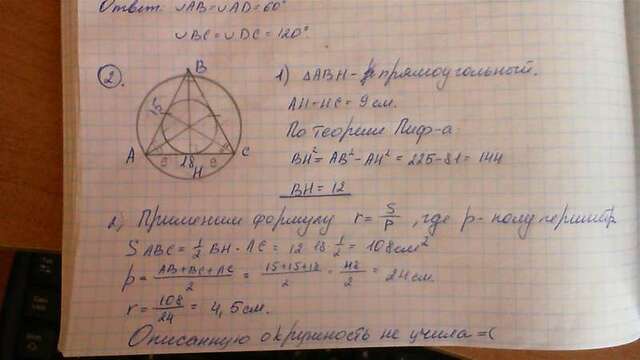 Ответ: ∪AB=∪AD=60°
∪BC=∪DC=120°.
2.
B
15
A
9
18
9
C
H
1) △ABH - прямоугольный.
AH=HC=9см.
По теореме Пиф-а:
BH²=AB²-AH²=225-81=144
BH=12
2) Применим формулу r=S/P, где p-полупериметр
SABC=1/2 BH·AC=12·18·1/2=108см²
p=AB+BC+AC/2=15+15+18/2=48/2=24см.
r=108/24=4,5см.
Описанную окружность не учила =(